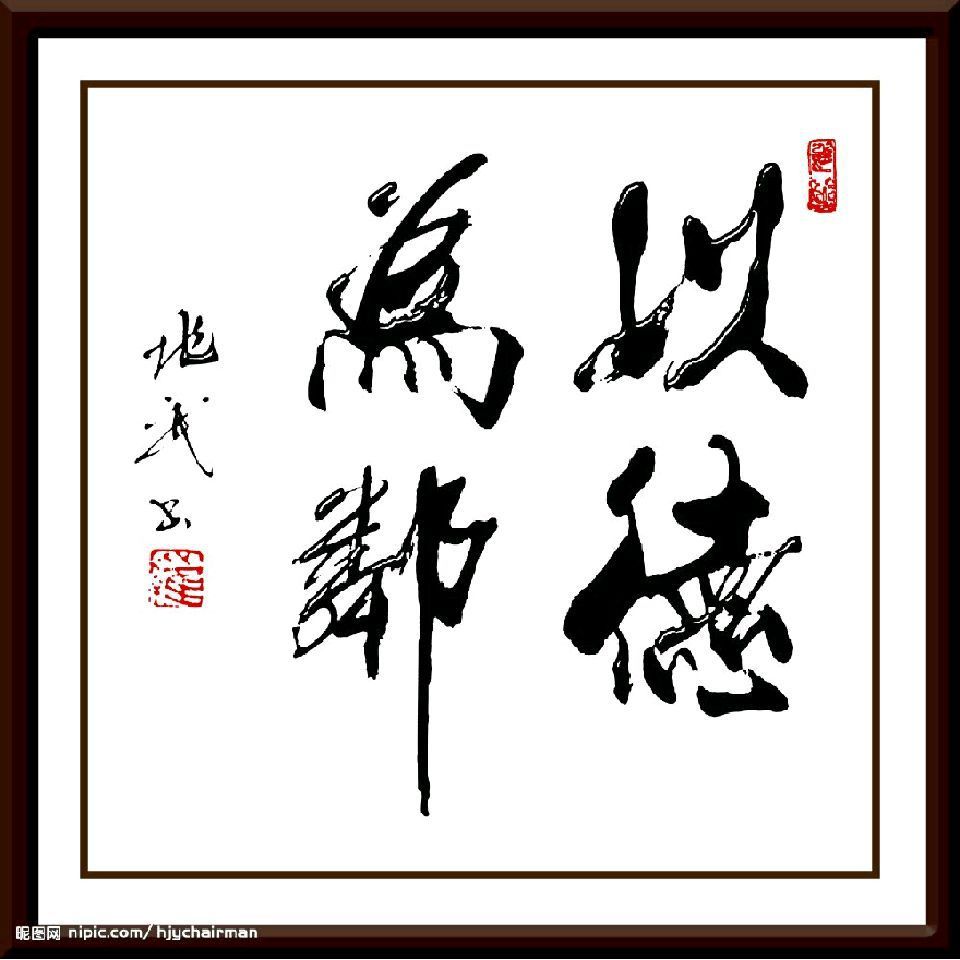 以德
為鄰
兆成书
昵图网 nipic.com/hjychairman